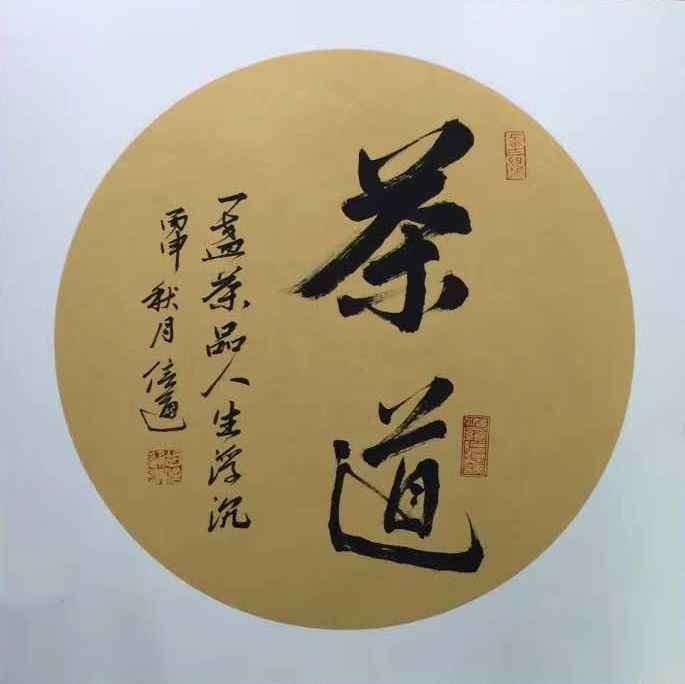 茶道
一盏茶品人生浮沉
丙申秋月信逎